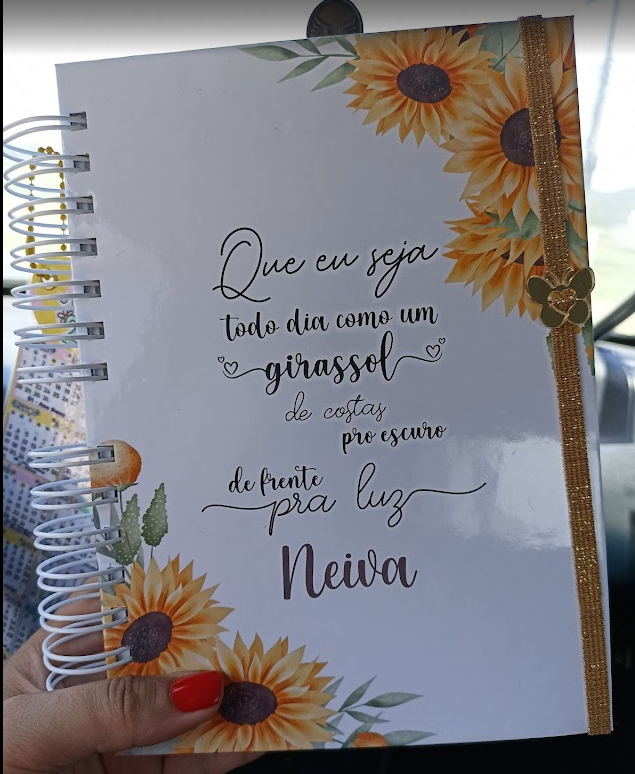 Que eu seja
todo dia como um
girassol
de costas
pro escuro
de frente
pra luz
Neiva